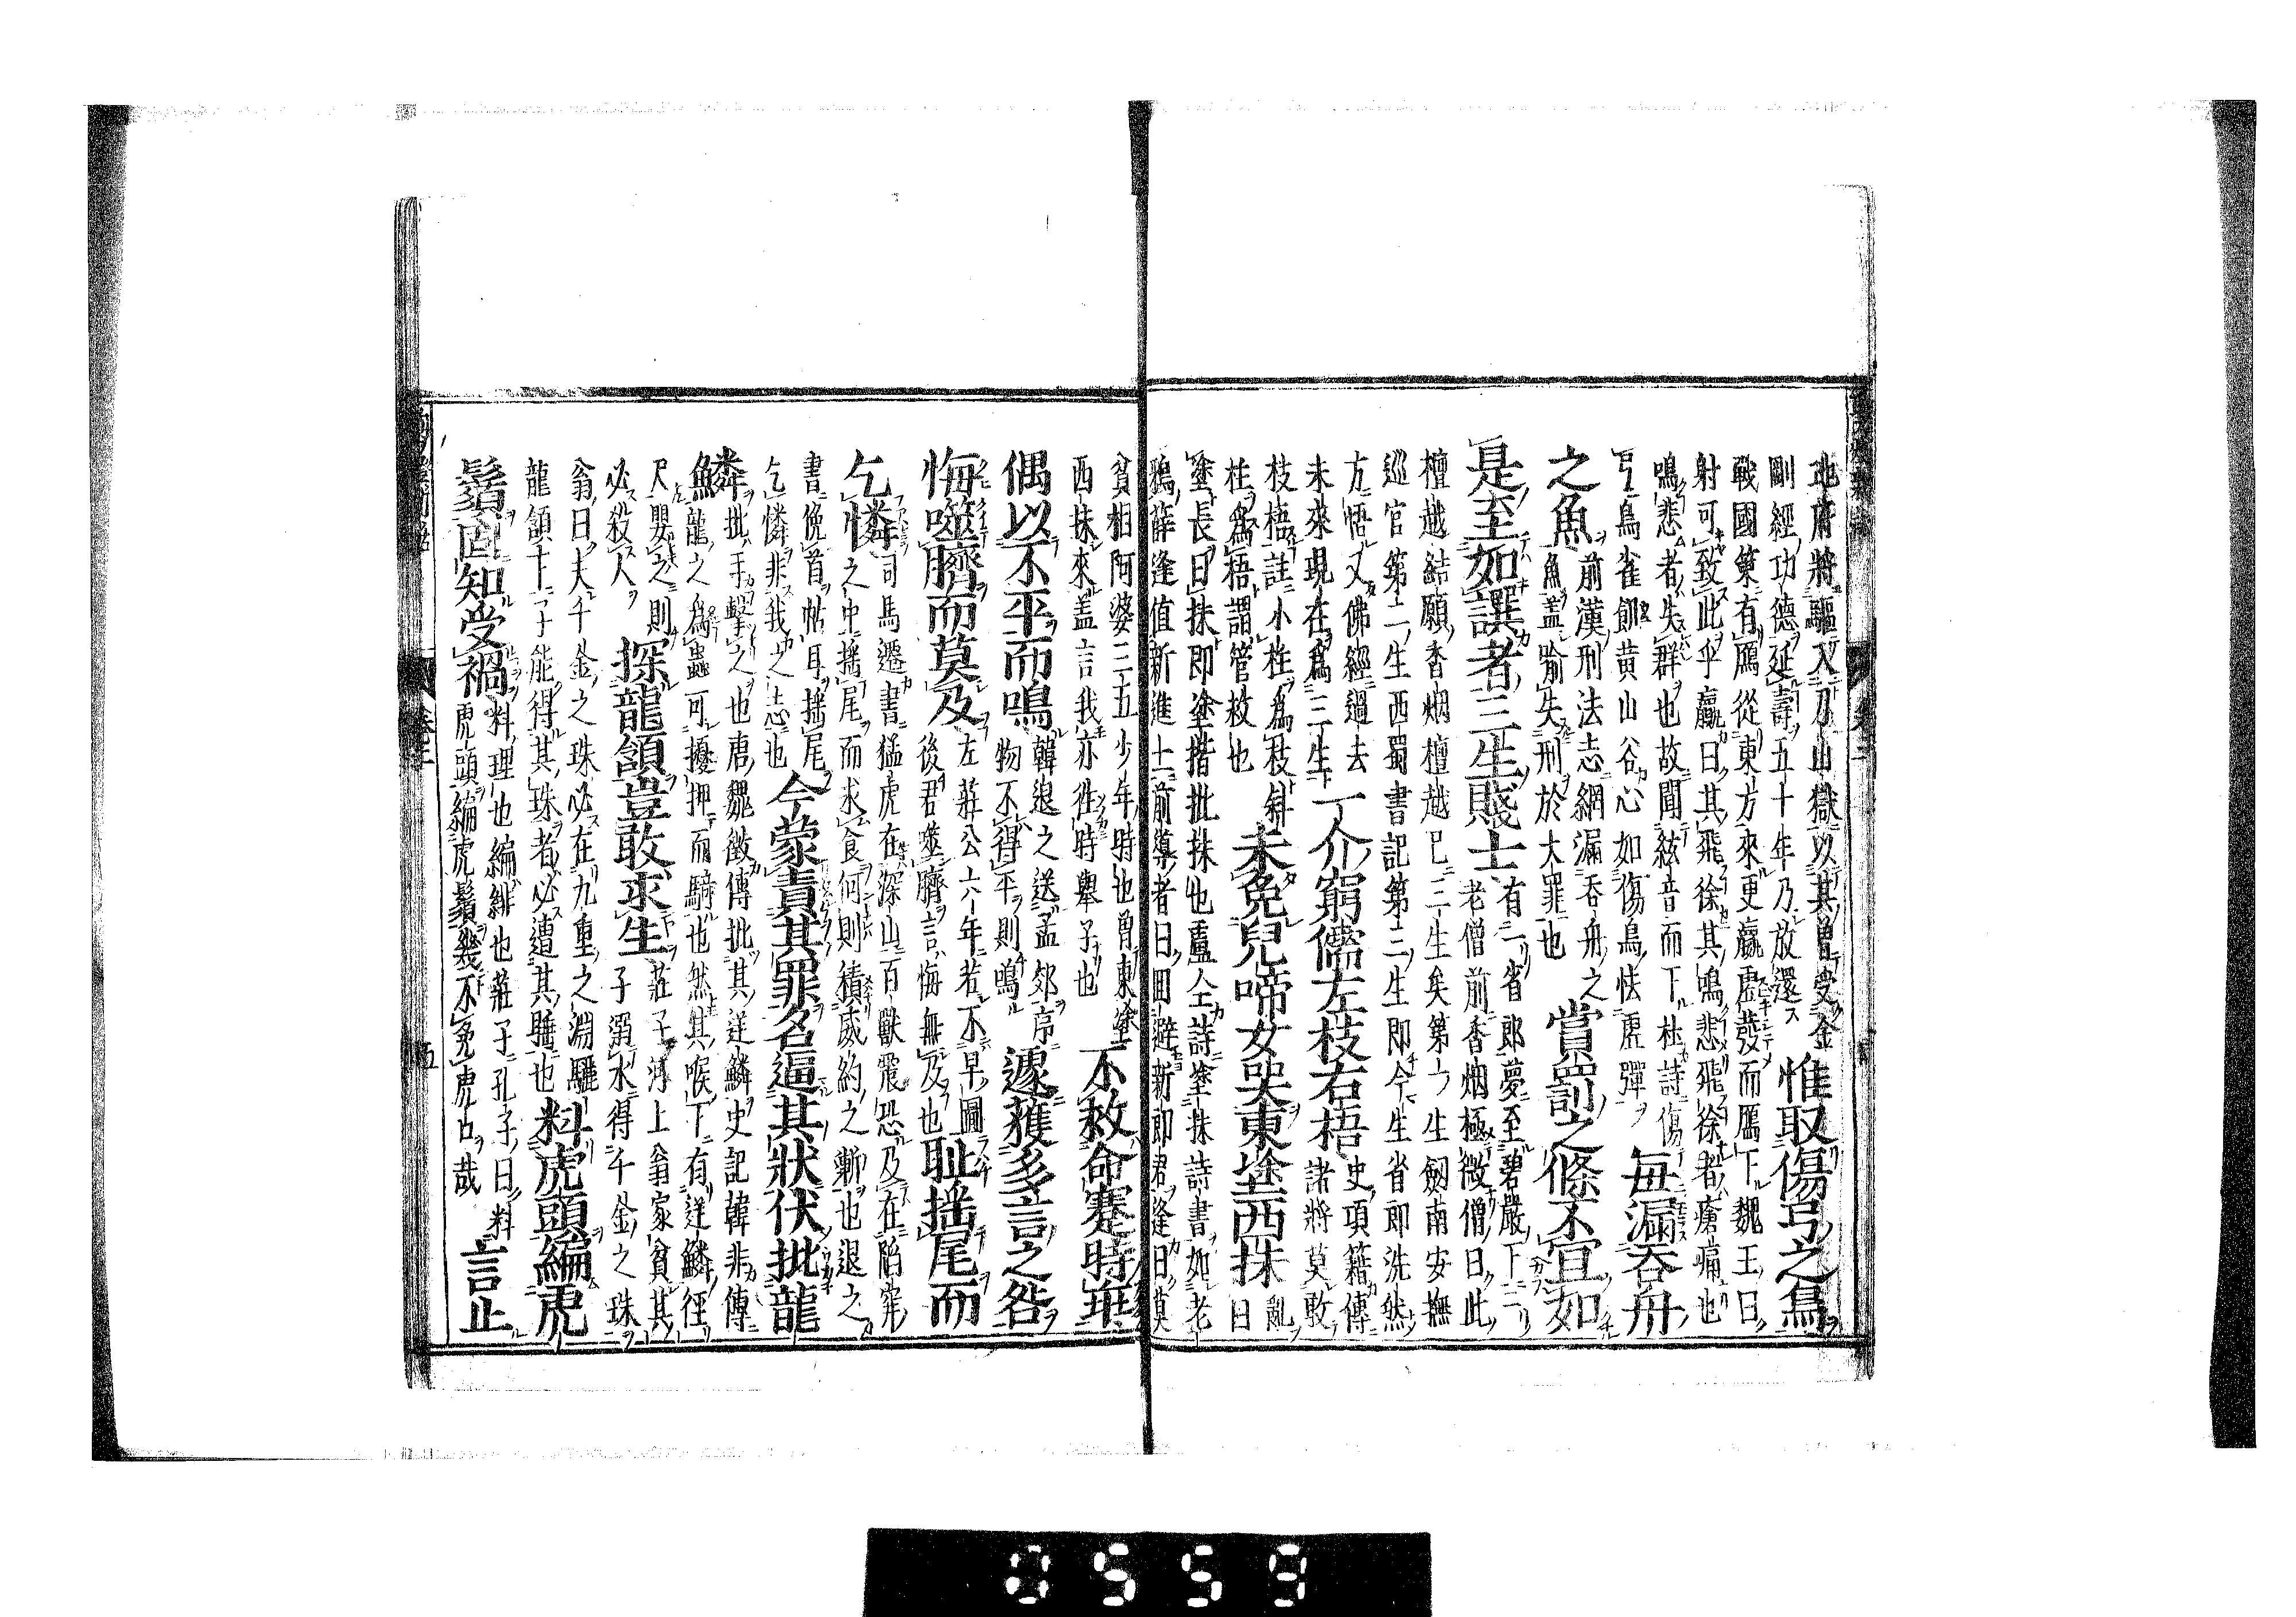 地府將驅入刀山獄以其曾受金
剛經功德延壽五十年乃放還惟取傷弓之鳥
戰國策有鴈從東方來更羸虛發而鴈下魏王曰
射可致此乎羸曰其飛徐其鳴悲飛徐者瘡痛也
鳴悲者失群也故聞絃音而下杜詩傷
弓鳥雀飢黃山谷心如傷鳥怯虛彈毎漏吞舟
之魚前漢刑法志網漏吞舟之
魚盖喻失刑於大罪也賞罰之條不宜如
是至如譔者三生賤士有一省郎夢至碧嚴下一
老僧前香烟極微僧曰此
檀越結願香烟檀越巳三生矣第一生劔南安撫
巡官第二生西蜀書記第三生即今生省郎洗然
方悟又佛經過去
未來現在為三生一介窮儒左枝右梧史項籍傳
諸將莫敢
枝梧註小柱為枝斜
柱為梧謂管救也未免兒啼女哭東塗西抹亂
曰
塗長曰抹即塗揩批抹也盧仝詩塗抹詩書如老
鴉薛逢值新進士前導者曰回避新郎君逢曰莫
貧相阿婆三五少年時也曾東塗
西抹來盖言我亦徃時舉子也不救命蹇時乖
偶以不平而鳴韓退之送孟郊序
物不得平則鳴遽獲多言之咎
悔噬臍而莫及左莊公六年若不早圖
後君噬臍言悔無及也耻揺尾而
乞憐司馬遷書猛虎在深山百獸震恐及在陷穽
之中揺尾而求食何則積威約之漸也退之
書俛首帖耳揺尾
乞憐非我之志也今蒙責其罪名逼其狀伏批龍
鱗批手擊之也唐魏徵傳批其逆鱗史記韓非傳
魚龍之為蟲可擾押而騎也然其喉下有逆鱗徑
尺嬰之則
必殺人探龍頷豈敢求生莊子河上翁家貧其
子溺水得千金之珠
翁曰夫千金之珠必在九重之淵驪
龍頷下子能得其珠者必遭其睡也料虎頭編虎
鬚固知受禍料理也編緋也莊子孔子曰料
虎頭編虎鬚幾不免虎口哉言止
五